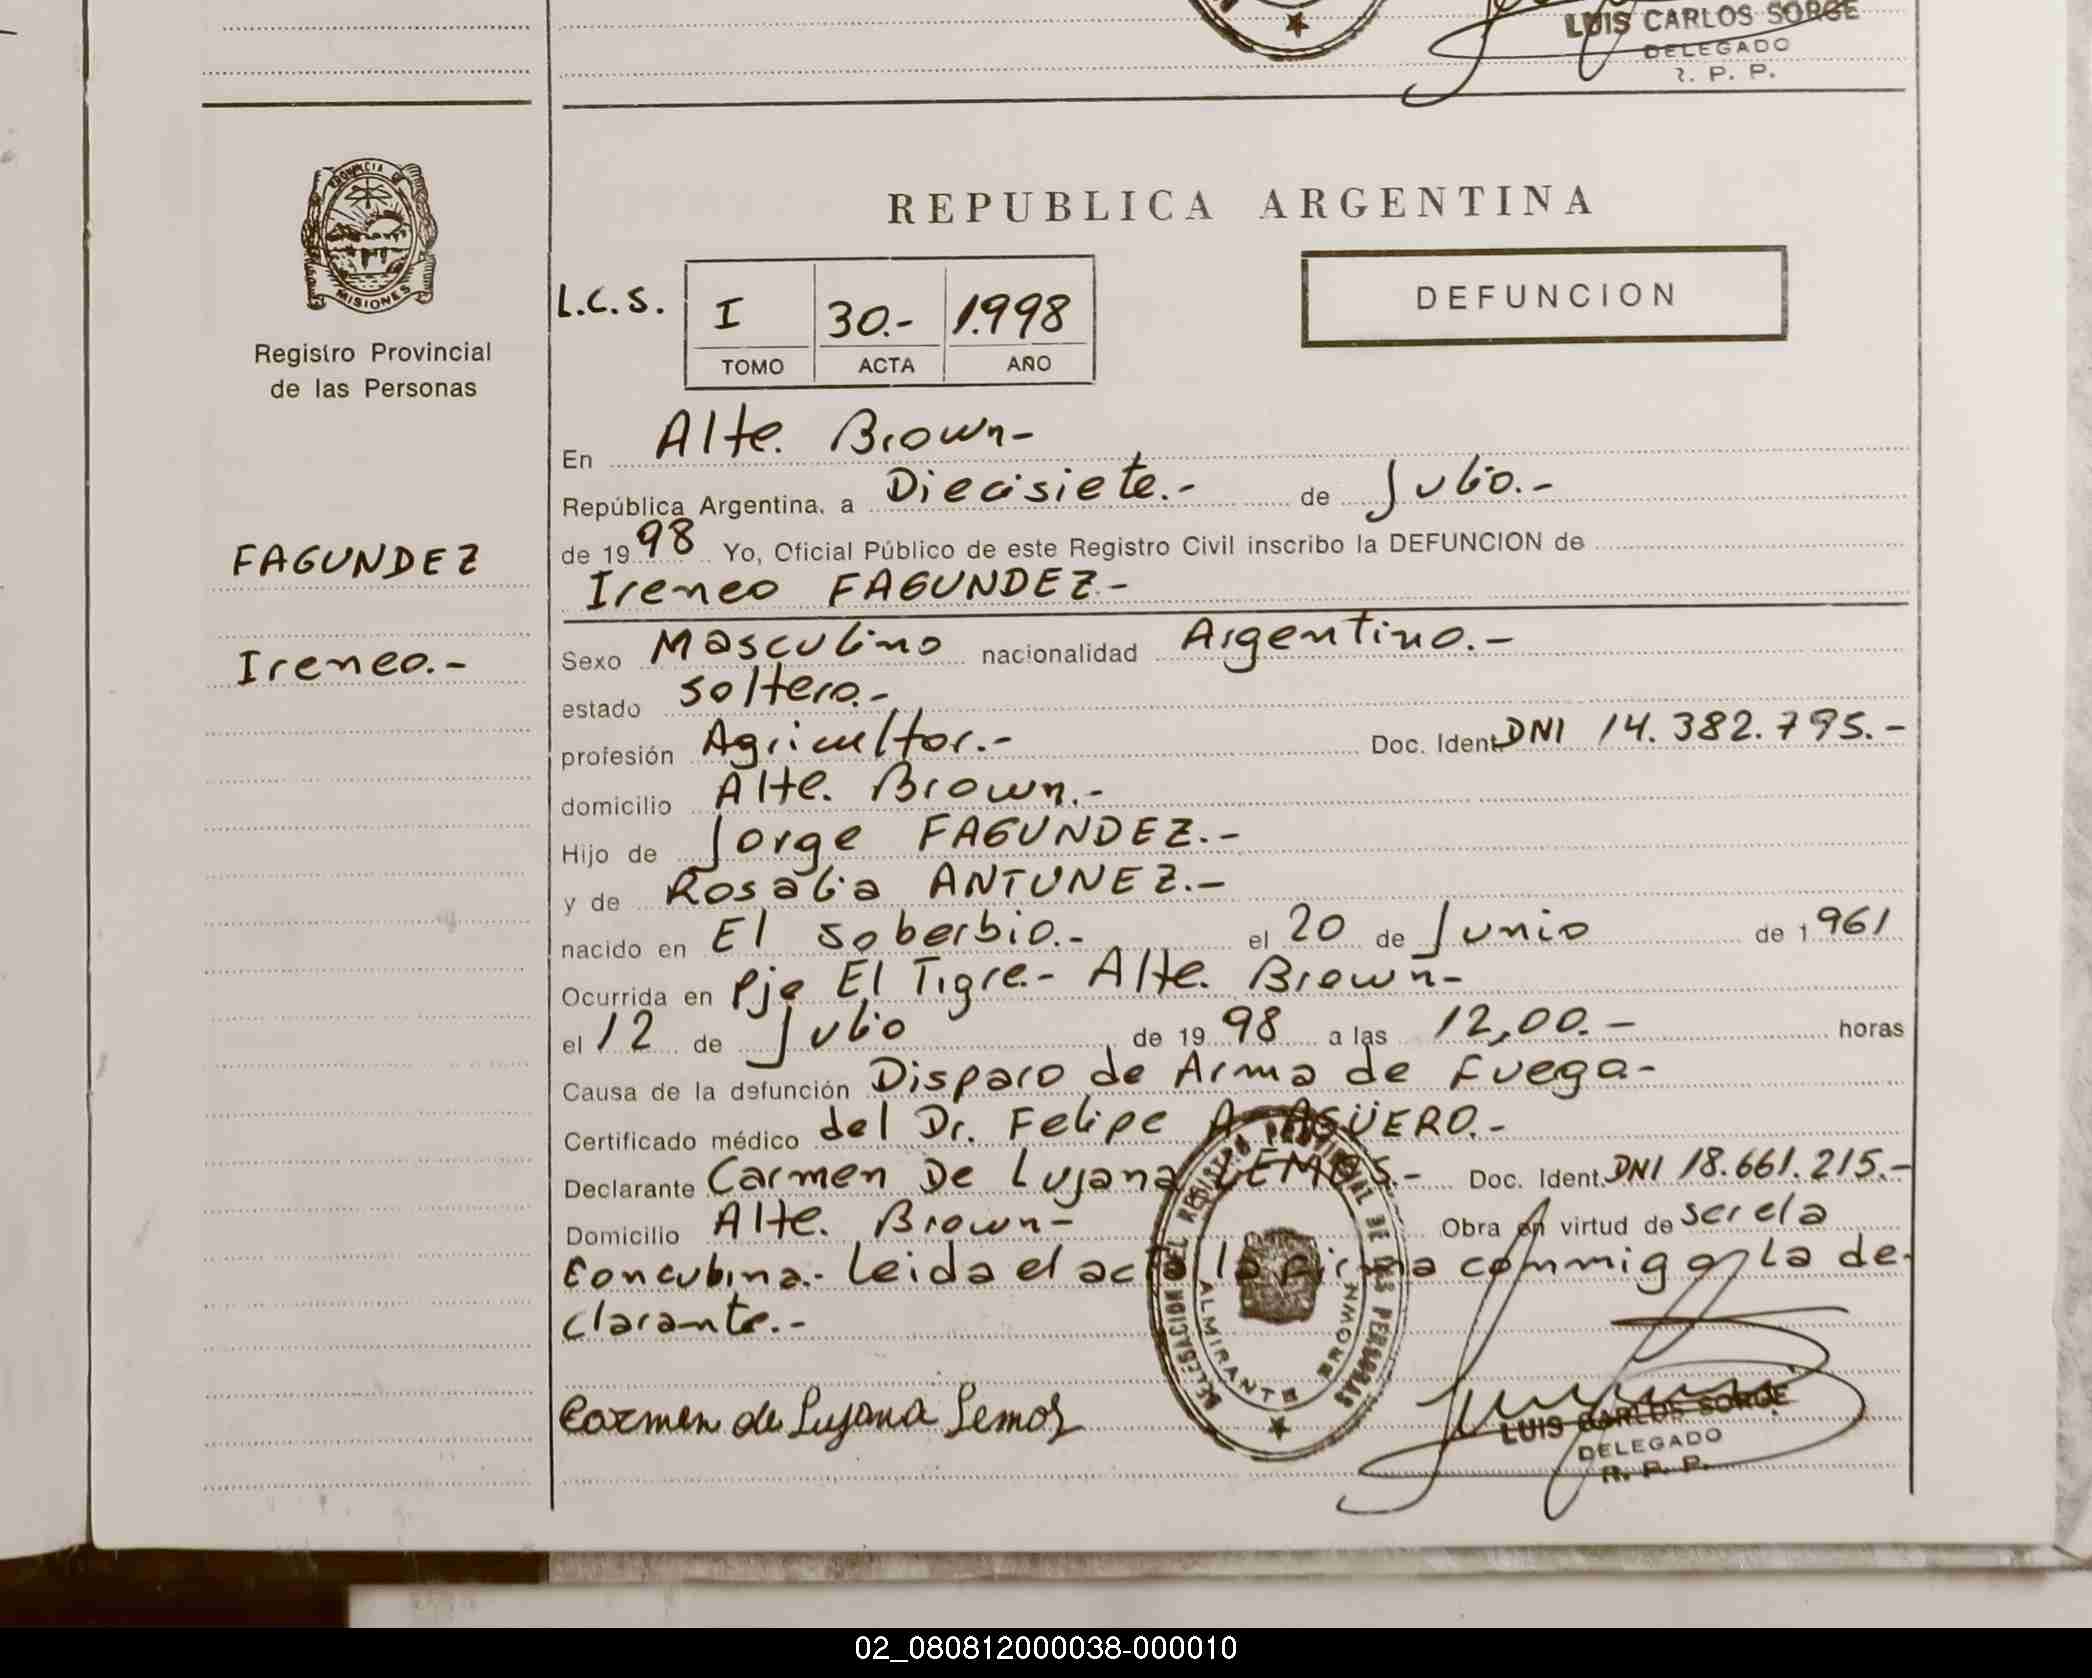 LUIS CARLOS SORGE
DELEGADO
R. P. P.
PROVINCIA DE
MISIONES
Registro Provincial
de las Personas
REPUBLICA ARGENTINA
L.C.S.
I 30.- 1.998
TOMO ACTA AÑO
DEFUNCION
En Alte. Brown-
República Argentina, a Diecisiete.- de Julio.-
de 1998 Yo, Oficial Público de este Registro Civil inscribo la DEFUNCION de
FAGUNDEZ
Ireneo FAGUNDEZ.-
Ireneo.-
Sexo Masculino nacionalidad Argentino.-
estado soltero.-
profesión Agricultor.- Doc. Ident. DNI 14.382.795.-
domicilio Alte. Brown.-
Hijo de Jorge FAGUNDEZ.-
y de Rosalia ANTUNEZ.-
nacido en El soberbio.- el 20 de Junio de 1961
Ocurrida en Pje El Tigre.- Alte. Brown-
el 12 de Julio de 1998 a las 12,00.- horas
Causa de la defunción Disparo de Arma de Fuego-
Certificado médico del Dr. Felipe A. AGÜERO.-
Declarante Carmen De Lujana LEMOS.- Doc. Ident. DNI 18.661.215.-
Domicilio Alte. Brown- Obra en virtud de ser ela
Concubina.- Leida el acta la firma commigo la de-
clarante.-
DELEGACION DEL REGISTRO PROVINCIAL DE LAS PERSONAS
ALMIRANTE BROWN
Carmen de Lujana Lemos
LUIS CARLOS SORGE
DELEGADO
R. P. P.
02_080812000038-000010